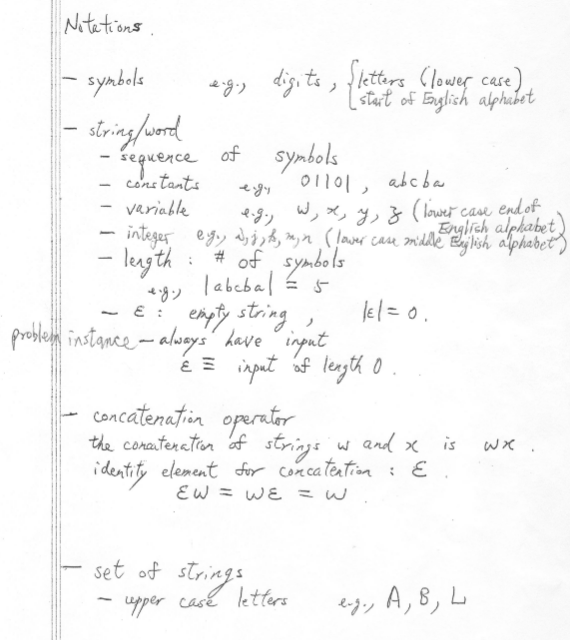 Notations.
- symbols e.g., digits, {letters (lower case)
start of English alphabet
- string/word
- sequence of symbols
- constants e.g., 01101, abcba
- variable e.g., w, x, y, z (lower case end of
English alphabet)
- integer e.g., i, j, k, m, n (lower case middle English alphabet)
- length : # of symbols
e.g., |abcba| = 5
- ε : empty string, |ε| = 0.
problem instance - always have input
ε ≡ input of length 0.
- concatenation operator
the concatenation of strings w and x is wx.
identity element for concatention : ε.
εw = wε = w
- set of strings
- upper case letters e.g., A, B, L